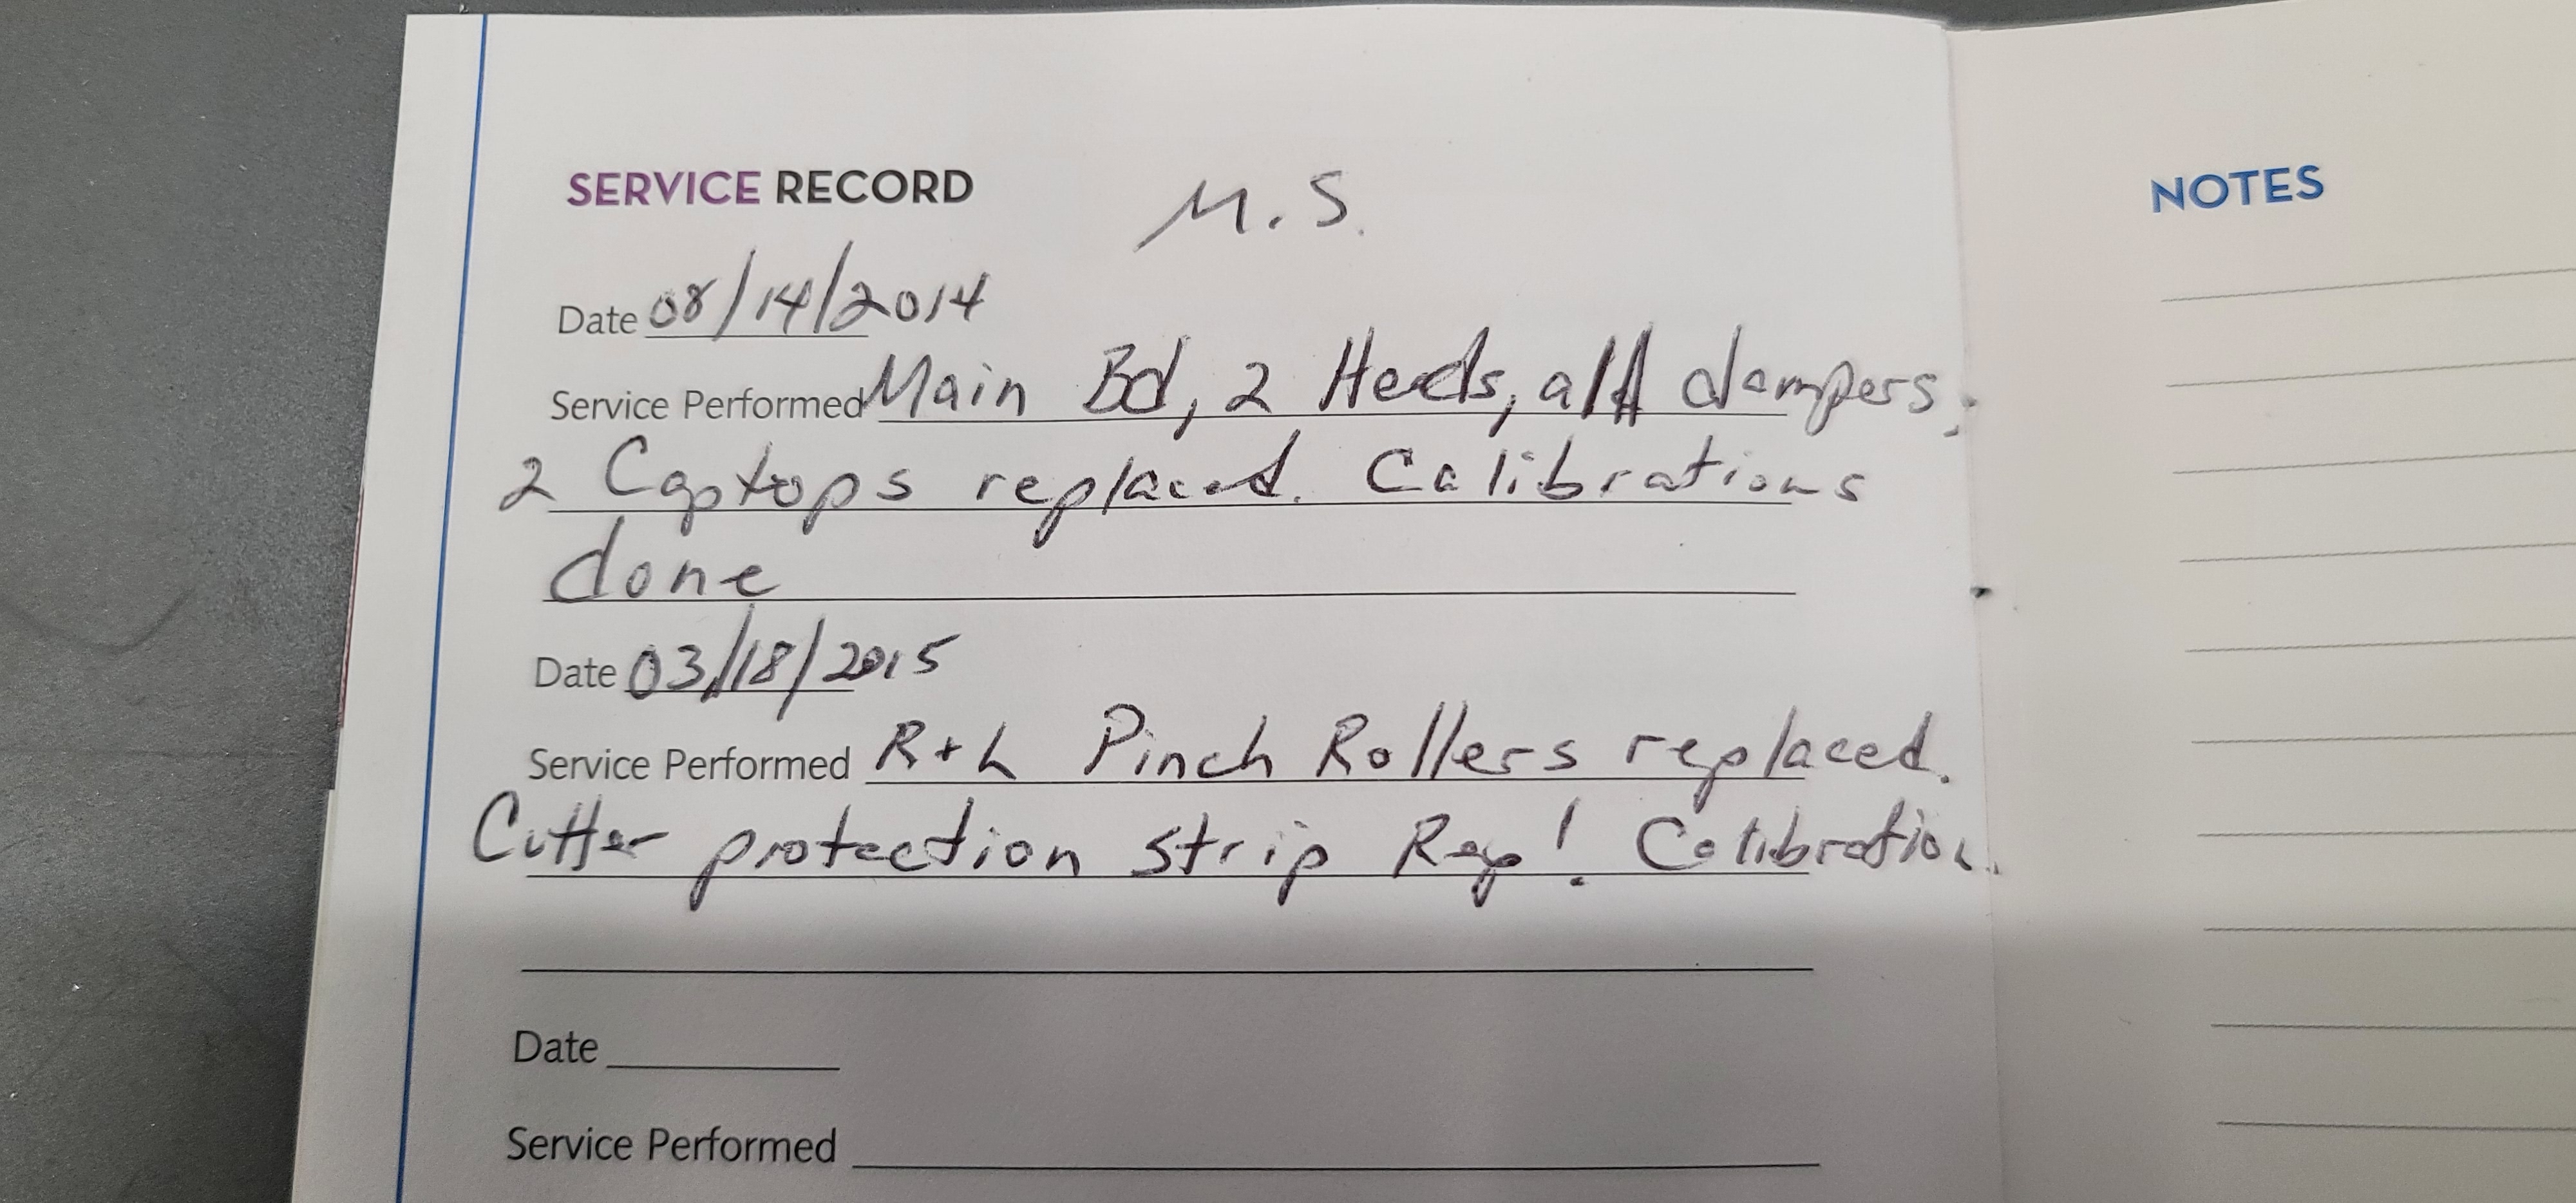 SERVICE RECORD M.S.
NOTES
Date 08/14/2014
Service Performed Main Bd, 2 Heads, all dampers,
2 Captops replaced. Calibrations
done
Date 03/18/2015
Service Performed R+L Pinch Rollers replaced.
Cutter protection strip Rep! Calibration.
Date
Service Performed